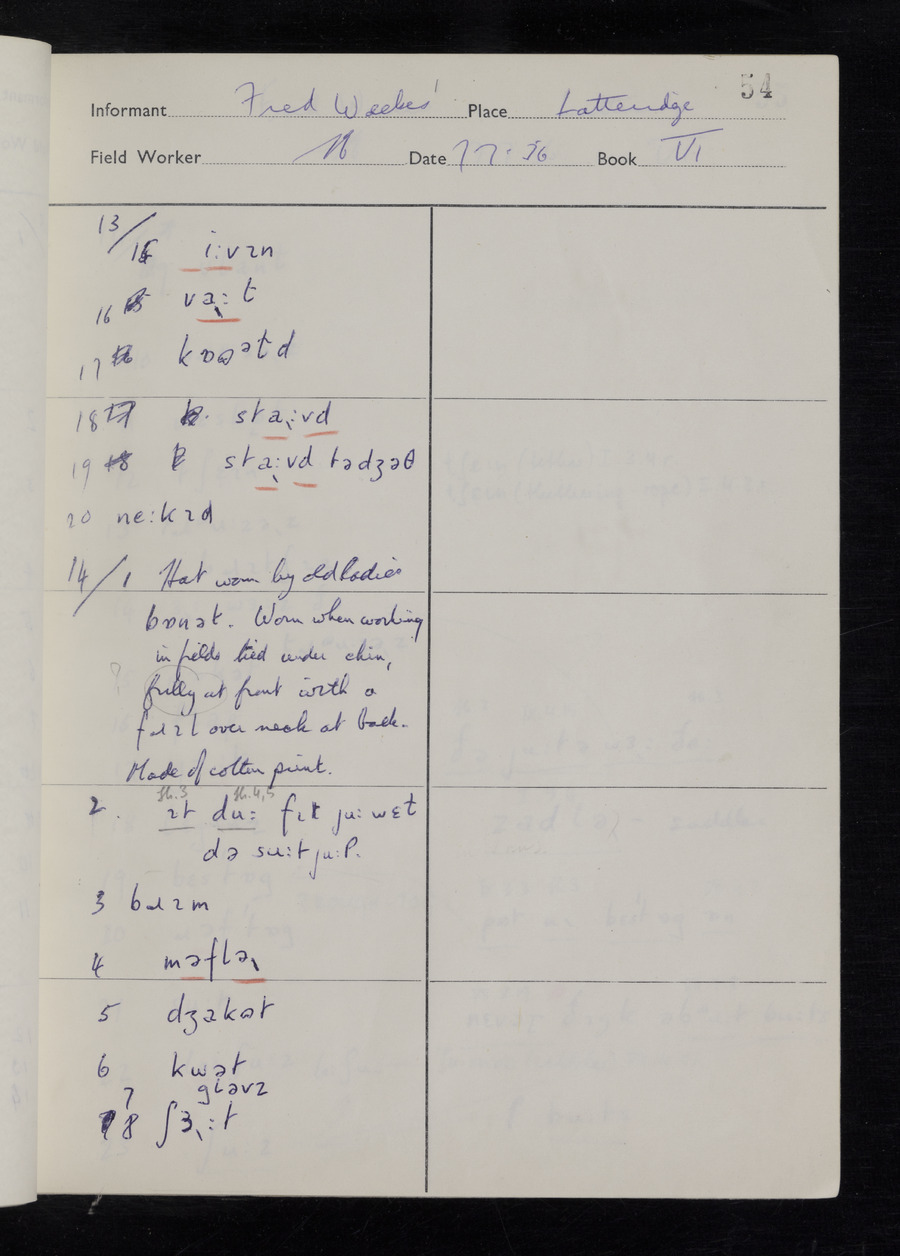 54
Informant Fred Weekes Place Latteridge
Field Worker Date 7.7.56 Book VI
13/
15 i:vɪn
16 va̢:t
17 kɒɷᵊtd
18 sta̢:vd
19 sta̢:vd tədʒəθ
20 ne:kɪd
14/1 Hat worn by old ladies
bɒnət. Worn when working
in fields tied under chin,
frilly at front with a
fɹɪl over neck at back.
Made of cotton print.
2. ɪt du: fɪt ju: wɛt
də su:t ju:?
3 bɹɪm
4 məflə̢
5 dʒakət
6 kwət
7 gləvz
8 ʃɜ̢:t